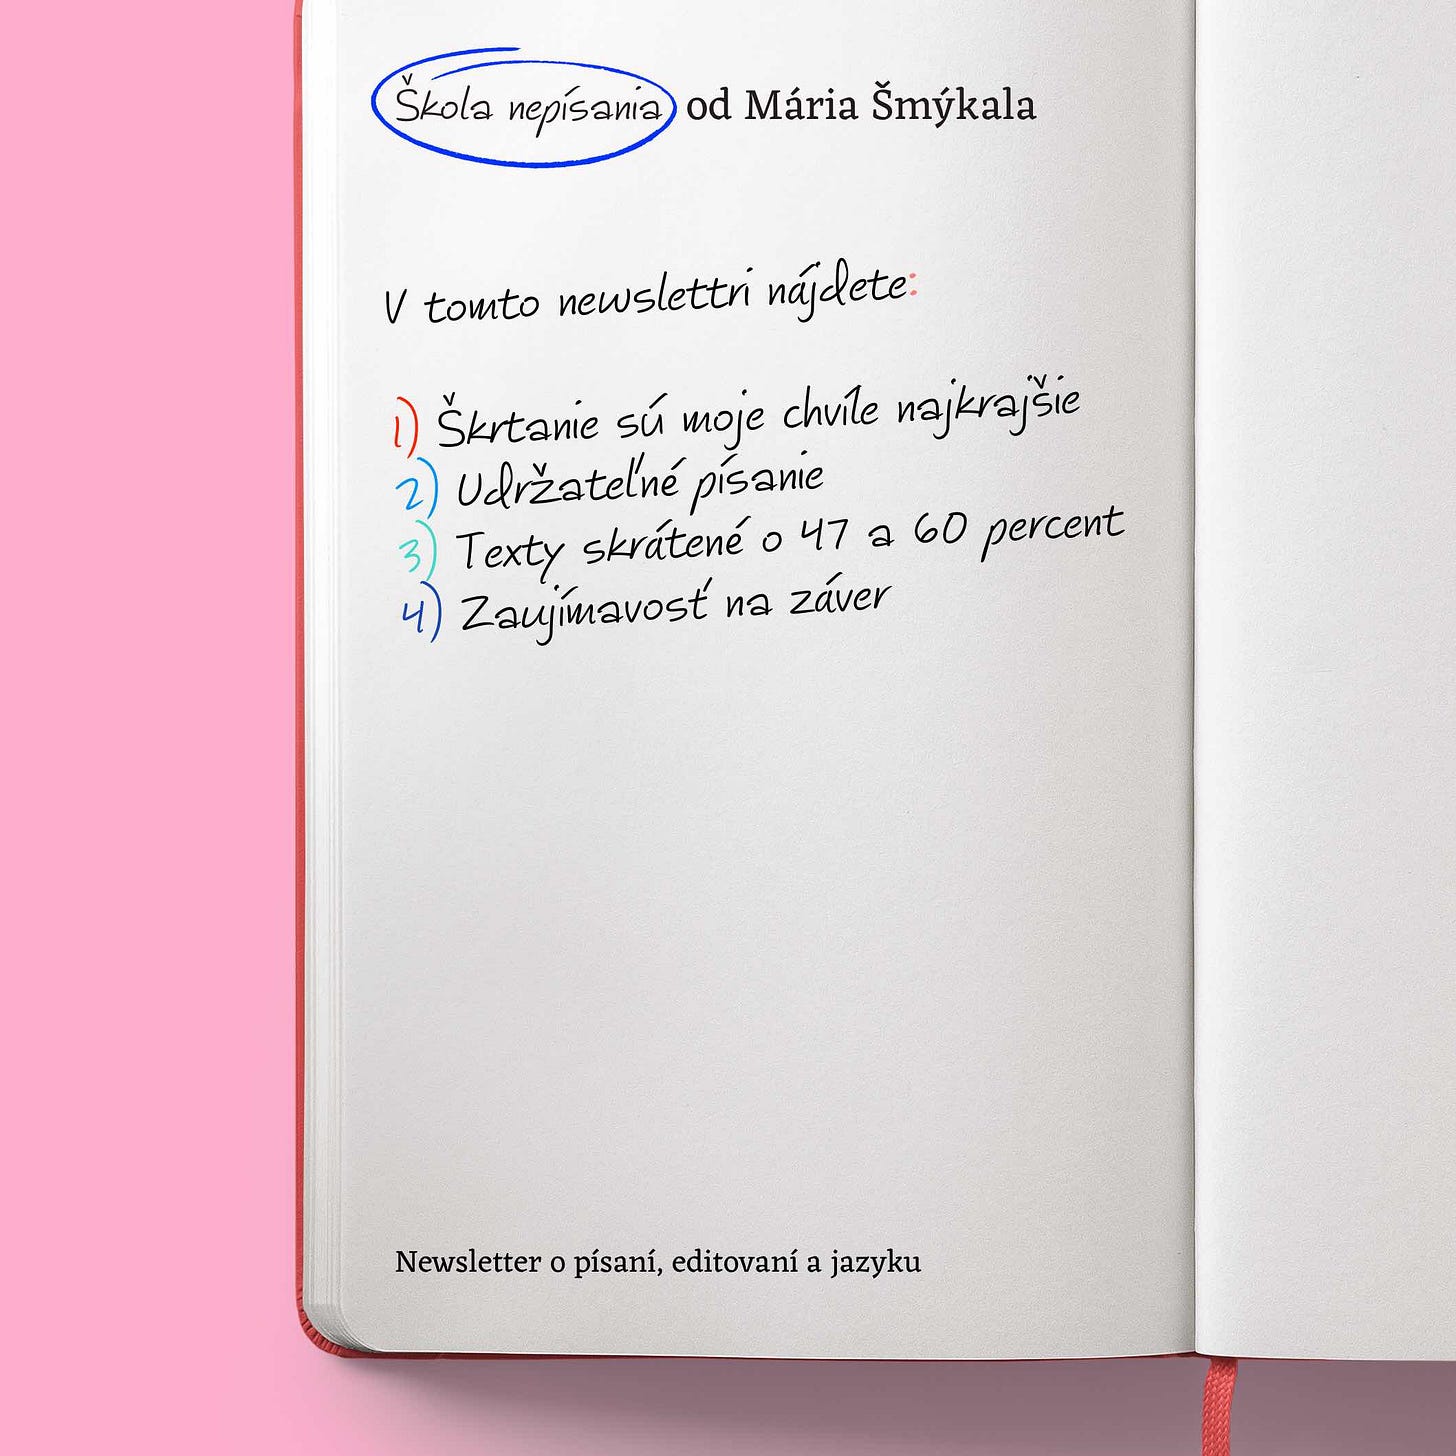 Škola nepísania od Mária Šmýkala
V tomto newslettri nájdete:
1) Škrtanie sú moje chvíle najkrajšie
2) Udržateľné písanie
3) Texty skrátené o 47 a 60 percent
4) Zaujímavosť na záver
Newsletter o písaní, editovaní a jazyku